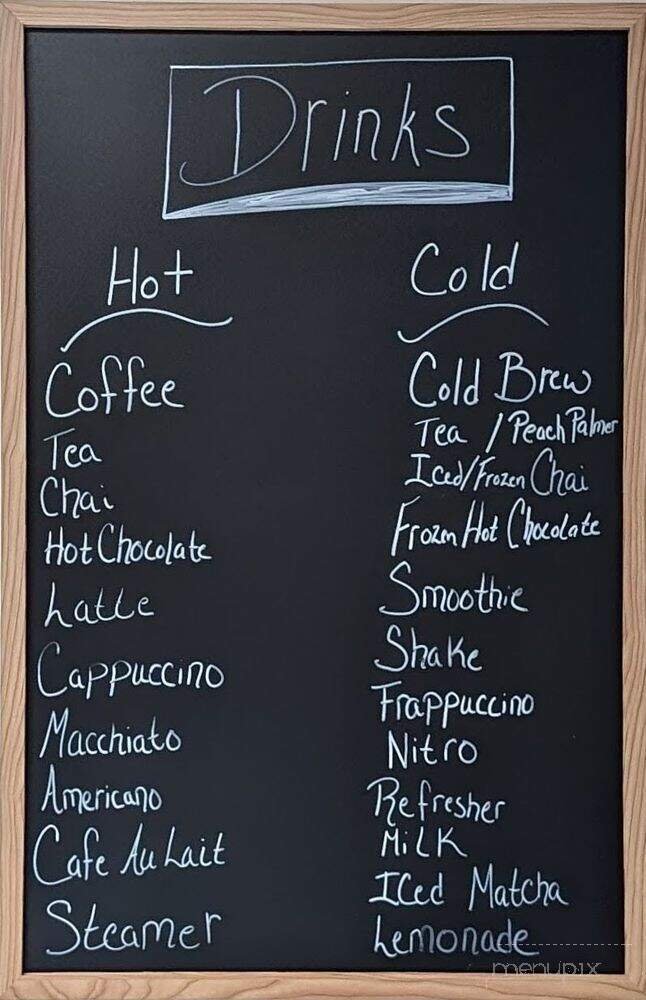 Drinks
Hot
Coffee
Tea
Chai
Hot Chocolate
Latte
Cappuccino
Macchiato
Americano
Cafe Au Lait
Steamer
Cold
Cold Brew
Tea / Peach Palmer
Iced/Frozen Chai
Frozen Hot Chocolate
Smoothie
Shake
Frappuccino
Nitro
Refresher
Milk
Iced Matcha
Lemonade
menupix